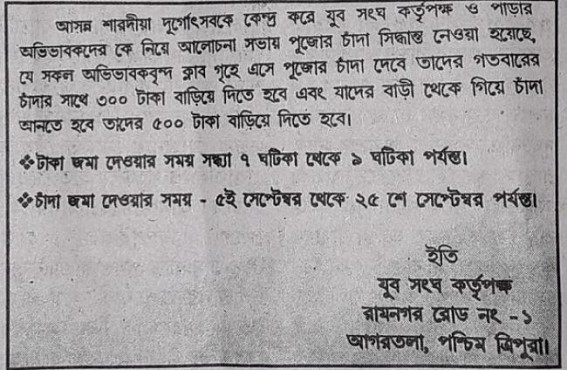 আসন্ন শারদীয়া দূর্গোৎসবকে কেন্দ্র করে যুব সংঘ কর্তৃপক্ষ ও পাড়ার
অভিভাবকদের কে নিয়ে আলোচনা সভায় পূজোর চাঁদা সিদ্ধান্ত নেওয়া হয়েছে,
যে সকল অভিভাবকবৃন্দ ক্লাব গৃহে এসে পূজোর চাঁদা দেবে তাদের গতবারের
চাঁদার সাথে ৩০০ টাকা বাড়িয়ে দিতে হবে এবং যাদের বাড়ী থেকে গিয়ে চাঁদা
আনতে হবে তাদের ৫০০ টাকা বাড়িয়ে দিতে হবে।
❖টাকা জমা দেওয়ার সময় সন্ধ্যা ৭ ঘটিকা থেকে ৯ ঘটিকা পর্যন্ত।
❖চাঁদা জমা দেওয়ার সময় - ৫ই সেপ্টেম্বর থেকে ২৫ শে সেপ্টেম্বর পর্যন্ত।
ইতি
যুব সংঘ কর্তৃপক্ষ
রামনগর রোড নং -১
আগরতলা, পশ্চিম ত্রিপুরা।